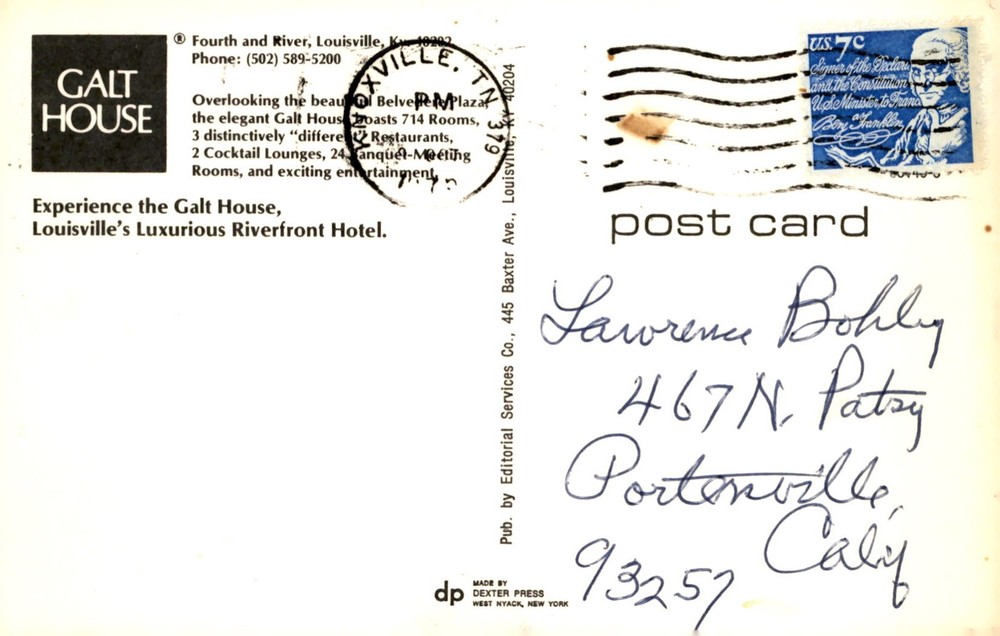 GALT
HOUSE
®
Fourth and River, Louisville, Ky. 40202
Phone: (502) 589-5200
Overlooking the beautiful Belvedere Plaza,
the elegant Galt House boasts 714 Rooms,
3 distinctively "different" Restaurants,
2 Cocktail Lounges, 24 Banquet-Meeting
Rooms, and exciting entertainment.
Experience the Galt House,
Louisville's Luxurious Riverfront Hotel.
KNOXVILLE, TN 379
PM
Pub. by Editorial Services Co., 445 Baxter Ave., Louisville, KY 40204
U.S. 7c
Signer of the Declara
and the Constitution
U.S. Minister to France
Ben Franklin
post card
Lawrence Bohley
467 N. Patsy
Portersville,
Calif
93257
dp
MADE BY
DEXTER PRESS
WEST NYACK, NEW YORK